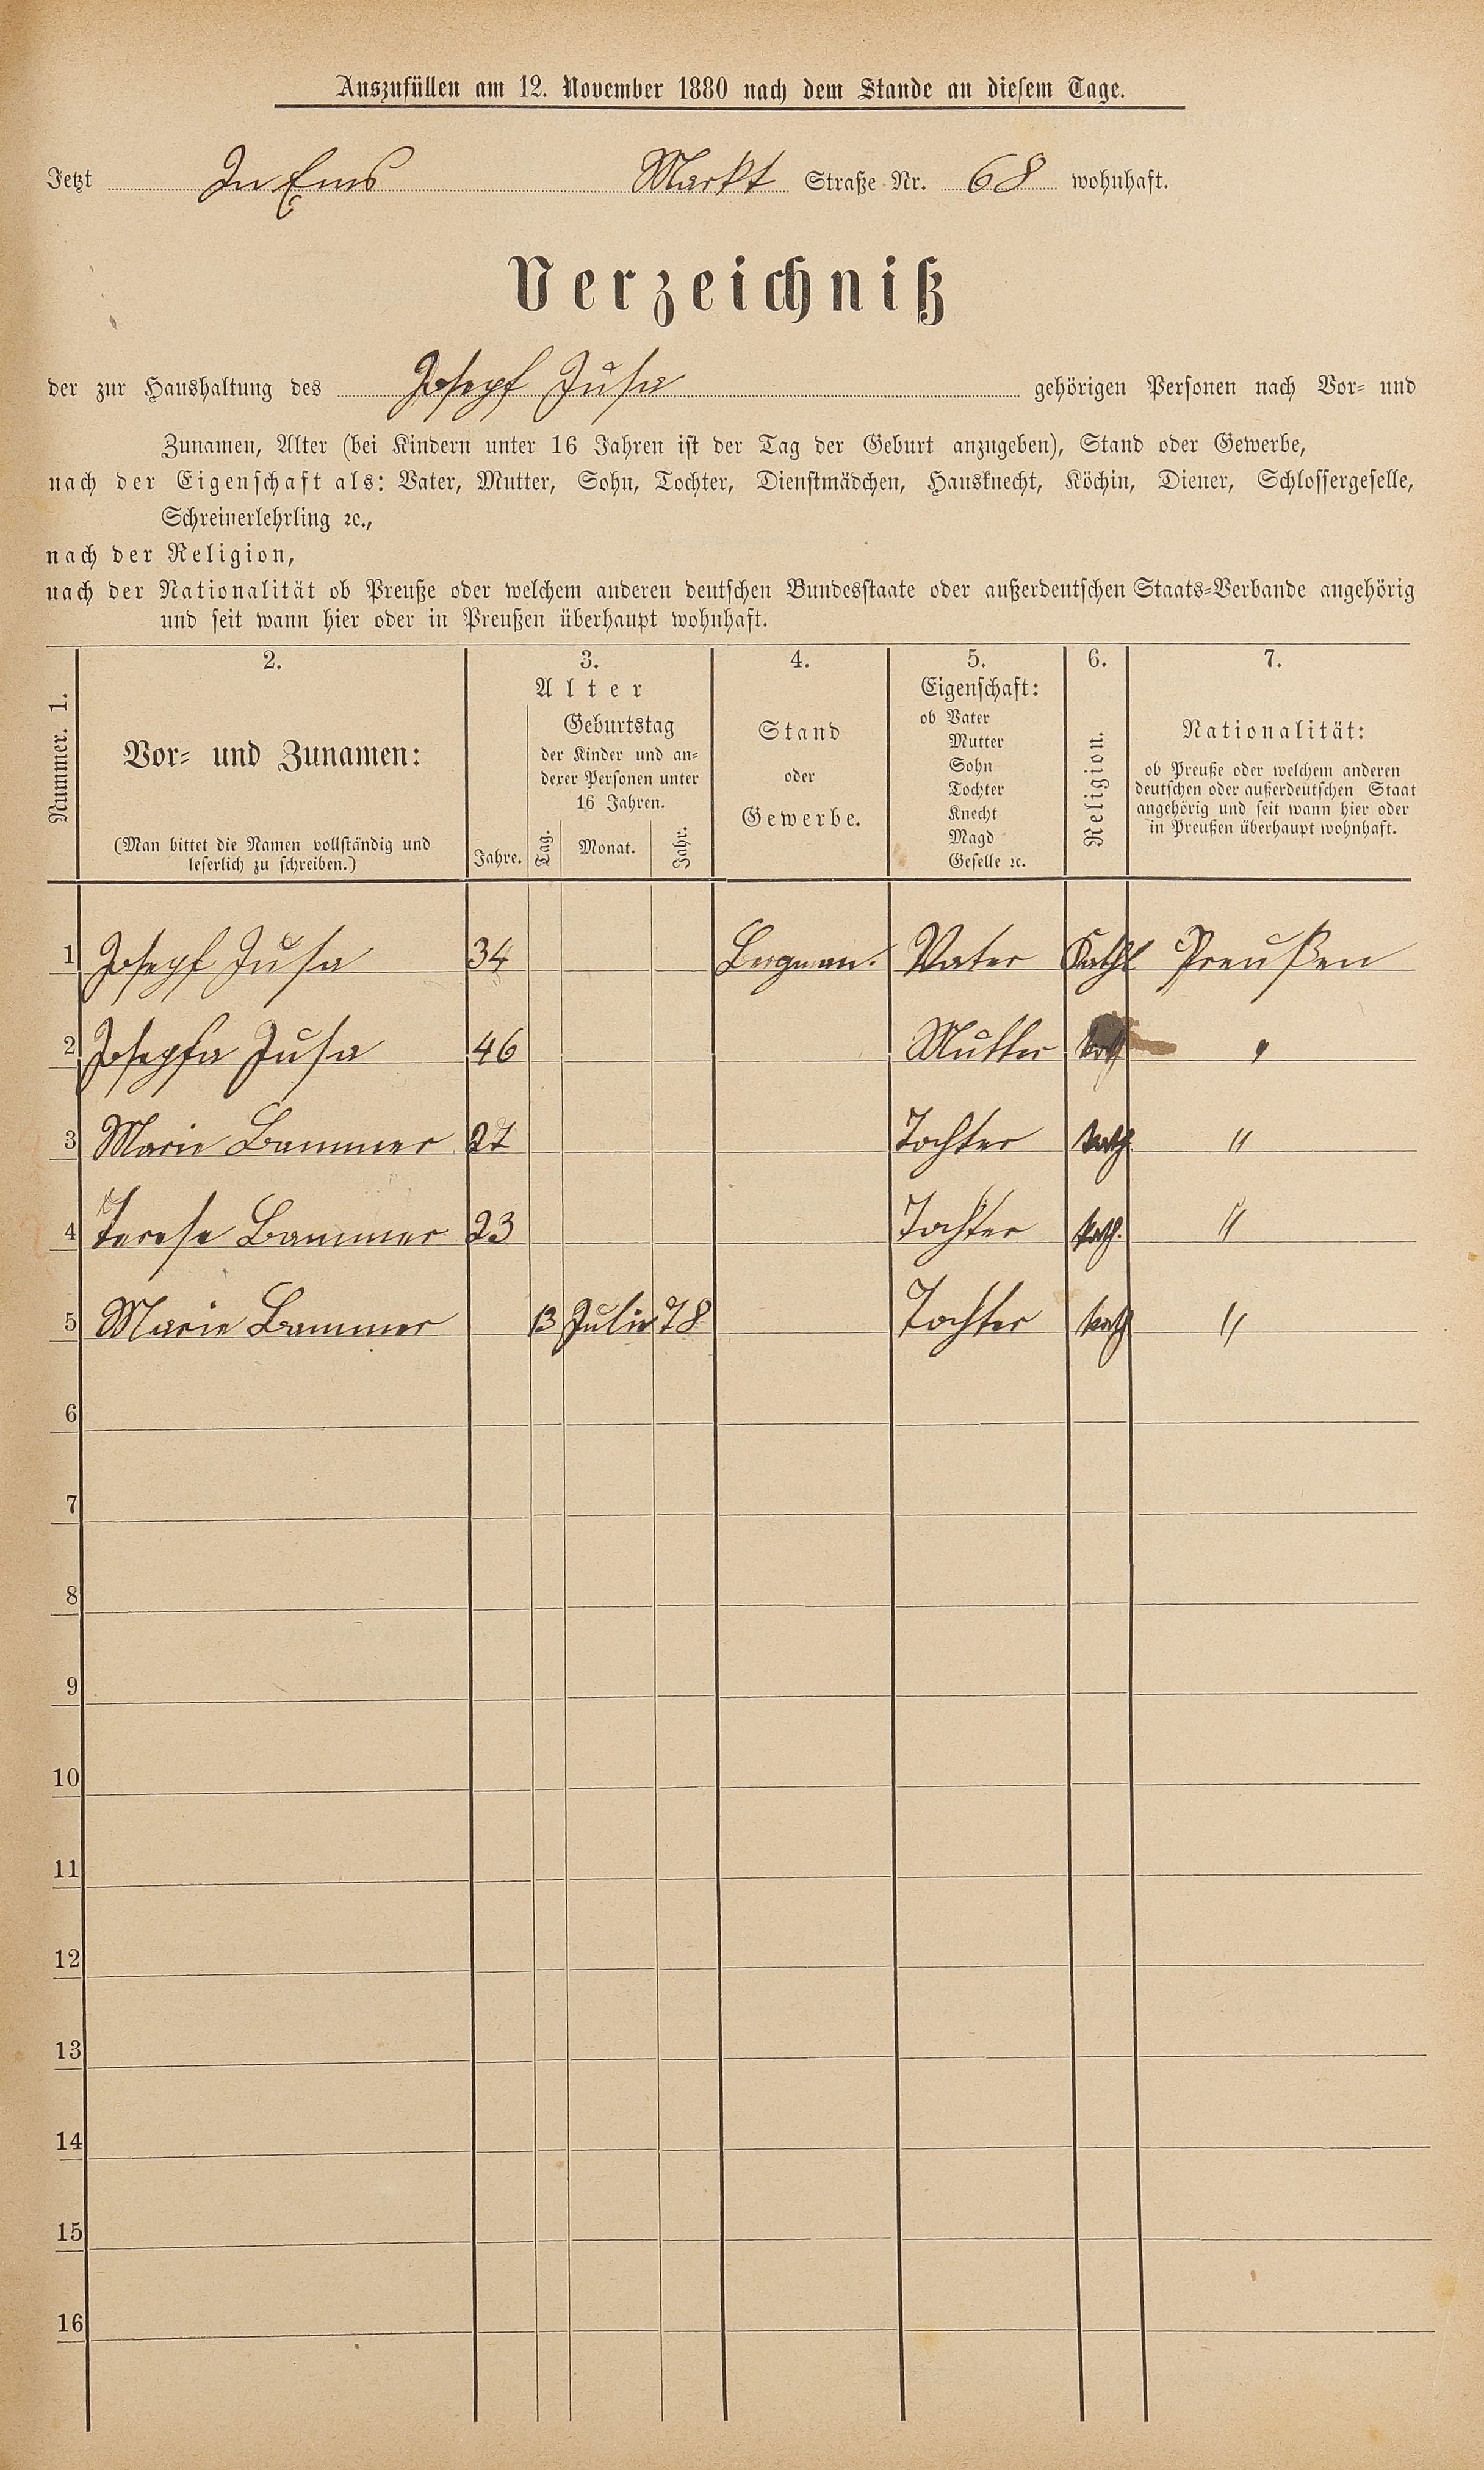 Auszufüllen am 12. November 1880 nach dem Stande an diesem Tage.
Jetzt In Ems Markt Straße Nr. 68 wohnhaft.
Verzeichniß
der zur Haushaltung des Josepf Jusa gehörigen Personen nach Vor- und
Zunamen, Alter (bei Kindern unter 16 Jahren ist der Tag der Geburt anzugeben), Stand oder Gewerbe,
nach der Eigenschaft als: Vater, Mutter, Sohn, Tochter, Dienstmädchen, Hausknecht, Köchin, Diener, Schlossergeselle,
Schreinerlehrling ꝛc.,
nach der Religion,
nach der Nationalität ob Preuße oder welchem anderen deutschen Bundesstaate oder außerdeutschen Staats-Verbande angehörig
und seit wann hier oder in Preußen überhaupt wohnhaft.
Nummer. 1.
2.
Vor- und Zunamen:
(Man bittet die Namen vollständig und
leserlich zu schreiben.)
3.
Alter
Jahre.
Geburtstag
der Kinder und an-
derer Personen unter
16 Jahren.
Tag. Monat. Jahr.
4.
Stand
oder
Gewerbe.
5.
Eigenschaft:
ob Vater
Mutter
Sohn
Tochter
Knecht
Magd
Geselle ꝛc.
6.
Religion.
7.
Nationalität:
ob Preuße oder welchem anderen
deutschen oder außerdeutschen Staat
angehörig und seit wann hier oder
in Preußen überhaupt wohnhaft.
1 Josepf Jusa 34 Bergman. Vater Kathl Preußen
2 Josepfa Jusa 46 Mutter kath "
3 Marie Bammer 27 Tochter kath. "
4 Terese Bammer 23 Tochter kath. "
5 Marie Bammer 13 Julie 78 Tochter kath "
6
7
8
9
10
11
12
13
14
15
16